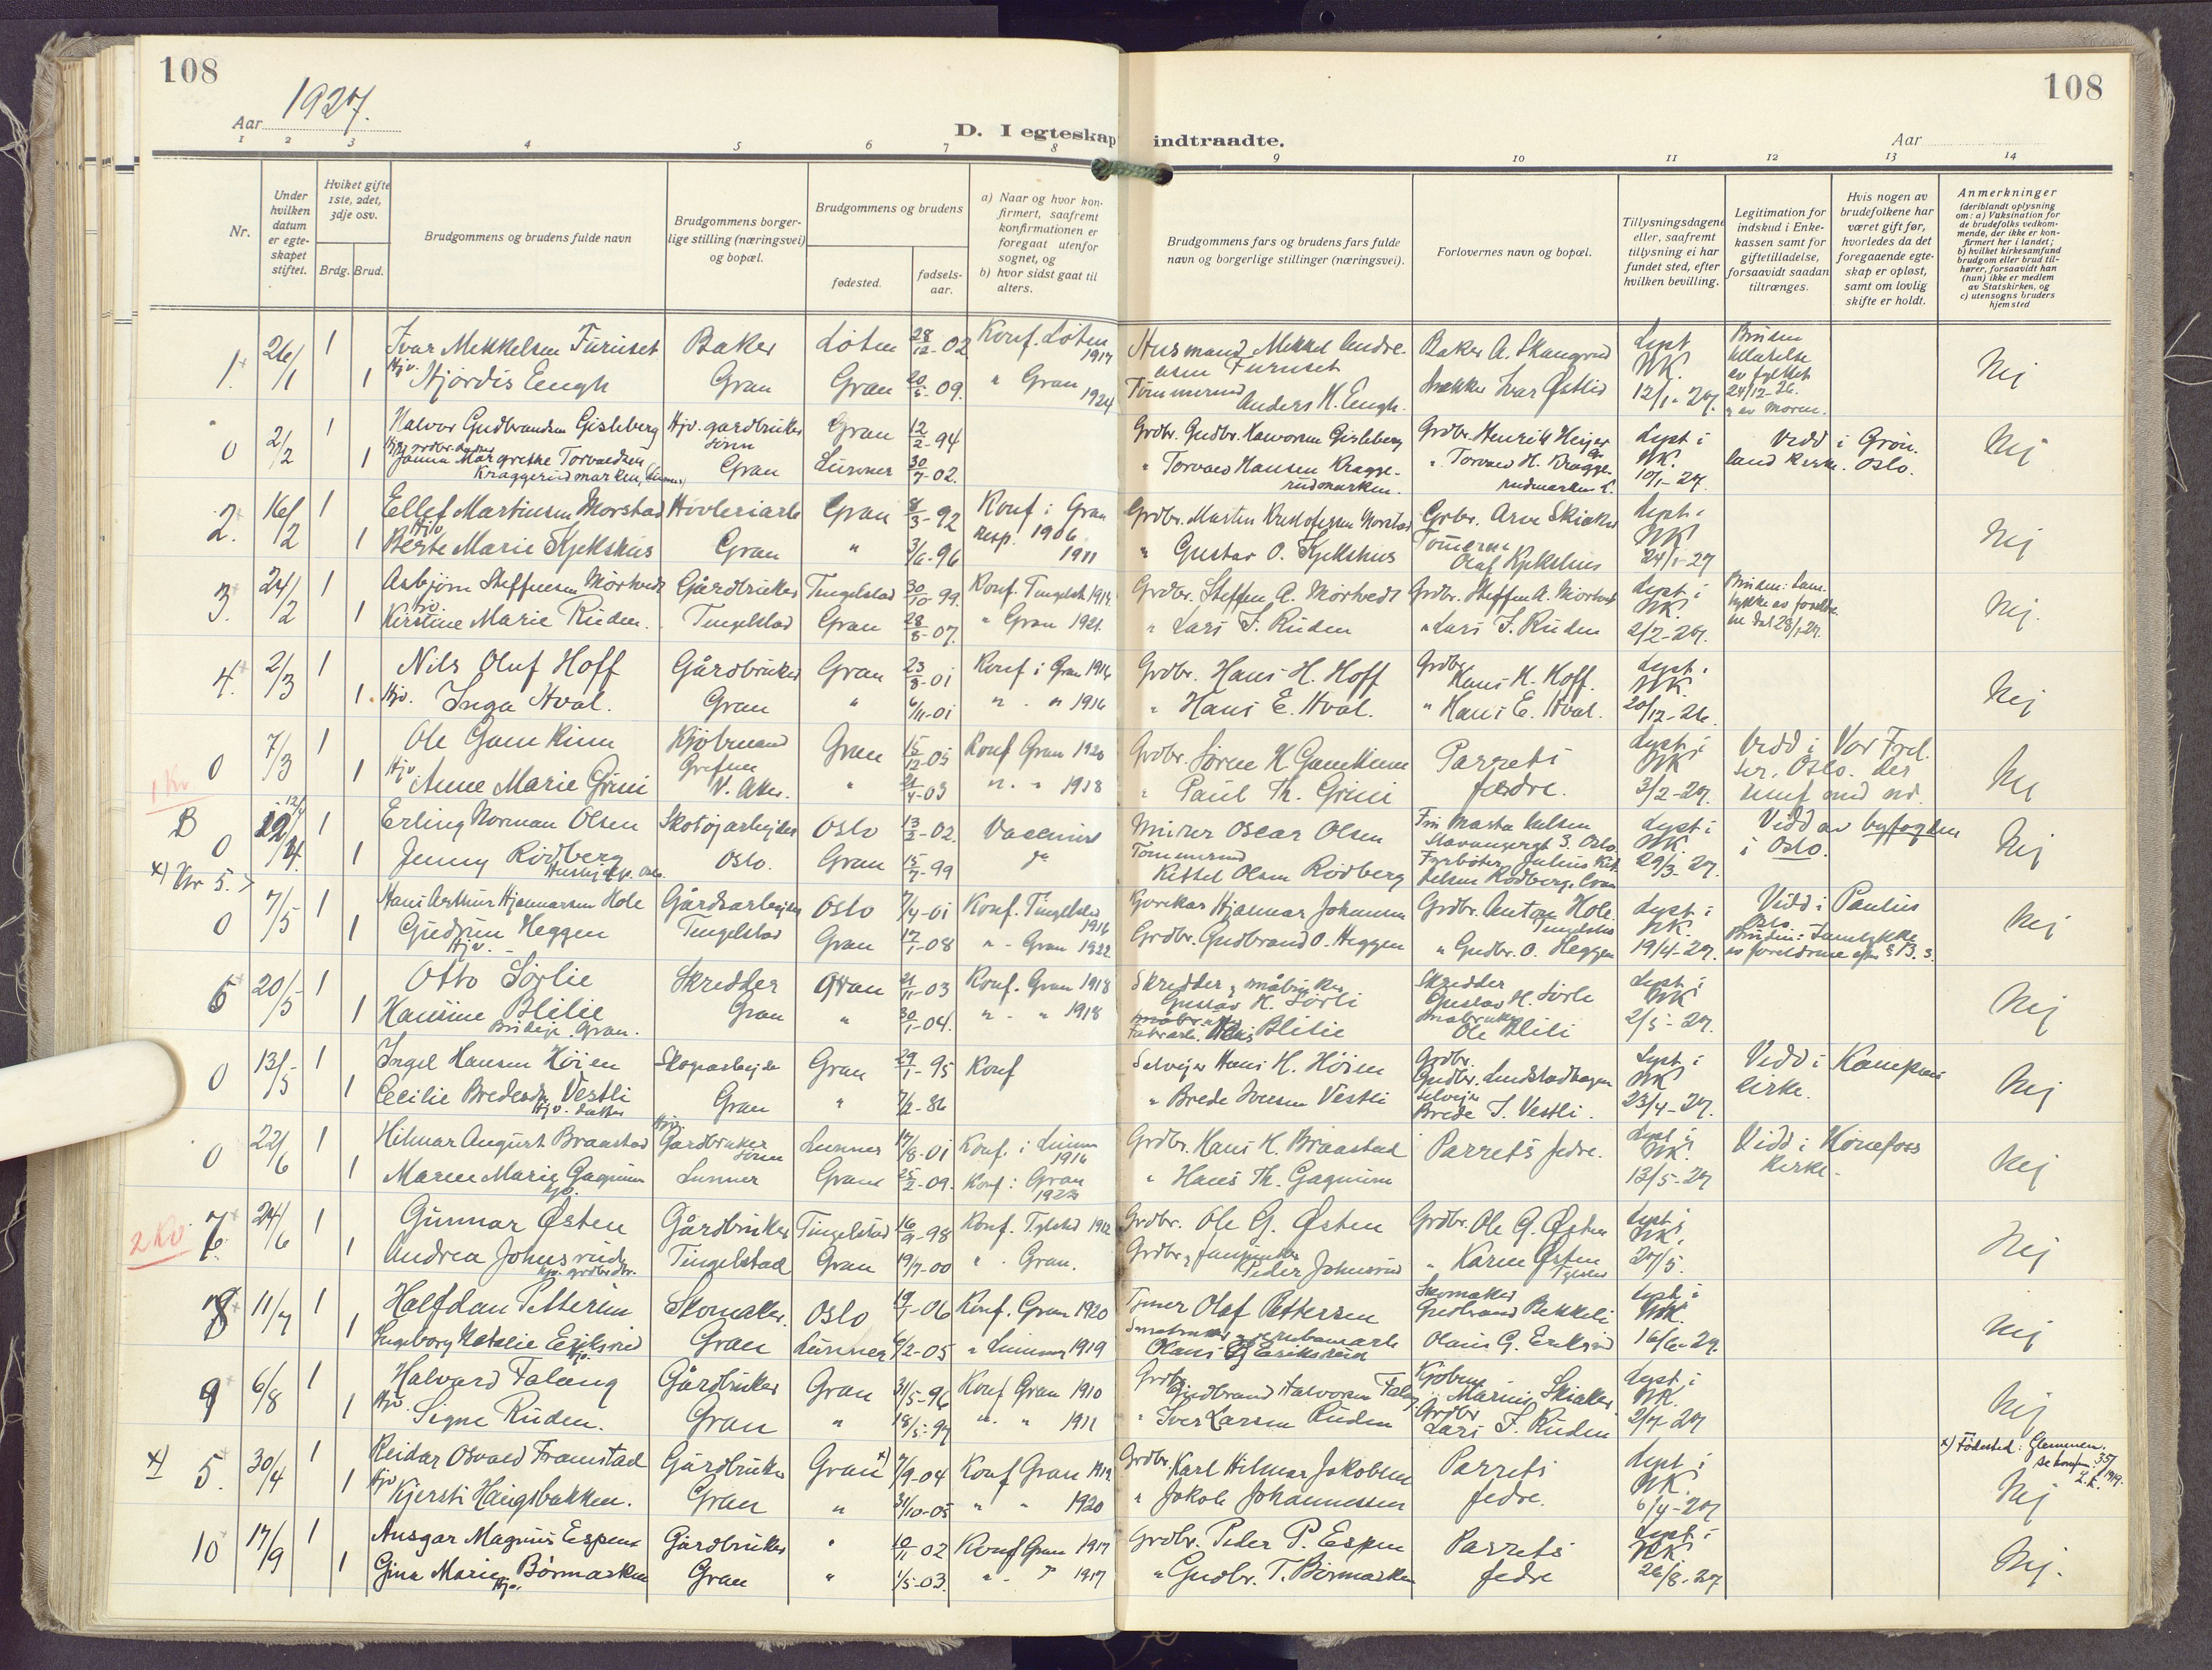 108
108
Aar 1927.
D. I egteskap indtraadte.
Aar
1 2 3 4 5 6 7 8 9 10 11 12 13 14
Nr.
Under hvilken datum er egteskapet stiftet.
Hvilket gifte 1ste, 2det, 3dje osv.
Brdg. Brud.
Brudgommens og brudens fulde navn
Brudgommens borgerlige stilling (næringsvei) og bopæl.
Brudgommens og brudens
fødested.
fødselsaar.
a) Naar og hvor konfirmert, saafremt konfirmationen er foregaat utenfor sognet, og
b) hvor sidst gaat til alters.
Brudgommens fars og brudens fars fulde navn og borgerlige stillinger (næringsvei).
Forlovernes navn og bopæl.
Tillysningsdagene eller, saafremt tillysning ei har fundet sted, efter hvilken bevilling.
Legitimation for indskud i Enkekassen samt for giftetilladelse, forsaavidt saadan tiltrænges.
Hvis nogen av brudefolkene har været gift før, hvorledes da det foregaaende egteskap er opløst, samt om lovlig skifte er holdt.
Anmerkninger (deriblandt oplysning om: a) Vaksination for de brudefolks vedkommende, der ikke er konfirmert her i landet; b) hvilket kirkesamfund brudgom eller brud tilhører, forsaavidt han (hun) ikke er medlem av Statskirken, og c) utensogns bruders hjemsted
1. 26/1 1 Ivar Mekkelsen Furuset Baker Løten 28/12-02 Konf. Løten 1917 Husmand Mekkel Andreasen Furuset Baker A. Skaugrud Lyst NK. 12/1-27. Nej
1 Hjv. Hjördis Engh Gran Gran 20/5-09. " Gran 1924 Tømmermd Anders H. Engh. Ivar Østlid 24/12-26 av moren.
0 2/2 1 Halvor Gudbrandsen Gisleberg Hjv. gardbruker sønn Gran 12/2-94 Grdbr. Gudbr. Halvorsen Gisleberg Grdbr. Henrik Heijer Lyst i NK. 10/1-27. Vidd i Grønland kirke. Oslo. Nej
1 Margrethe Torvaldsen Kraggerudmarken, Gran Lunner 30/7-02. " Torvald Hansen Kraggerudmarken. " Torvald H. Kraggerudmarken L.
2. 16/2 1 Ellef Martinsen Morstad Høvleriarb Gran 8/3-92 Konf i Gran resp. 1906 Grdbr. Martin Kristofersen Morstad Grbr. Arne Skiaker Lyst i NK 24/1-27 Nej
1 Hjv. Berte Marie Kjekshus Gran " 3/6-96 1911 " Gustav O. Kjekshus Olaf Kjekshus
3. 24/2 1 Asbjørn Steffensen Mörtvedt Gårdbruker Tingelstad 30/10-99. Konf. Tingelst. 1914. Grdbr. Steffen A. Mörtvedt Grdbr. Steffen A. Mortvedt Lyst i NK 2/2-27. Bruden: Samtykke av foreldrene dat 28/1-27. Nej.
1 Hjv. Kirstine Marie Ruden. Tingelstad Gran 28/8-07. " Gran 1921. " Lars I. Ruden " Lars I. Ruden
4. 2/3 1 Nils Oluf Hoff Gårdbruker Gran 23/8-01 Konf i Gran 1916 Grdbr. Hans H. Hoff Grdbr Hans H. Hoff. Lyst i NK. 20/12-26. Nej
1. Hjv. Inga Hval. Gran " 6/11-01 " . " 1916 " Hans E. Hval. " Hans E. Hval.
0 7/3 1 Ole Gamkinn Kjøbmand Grefsen Gran 15/12-05 Konf Gran 1920 Grdbr. Sören H. Gamkinn Parrets fædre. Lyst i NK 3/2-27. Vidd i Vor Frel ser. Oslo. Nej
1 Kr 1 Hjv Anne Marie Grini V. Aker. " 21/4-03 " . " 1918 " Paul Th. Grini
B 0 12/4 1 Erling Norman Olsen Skotøjarbejder Oslo 13/3-02. Murer Oscar Olsen Stavangergt 3. Oslo Lyst i NK. 29/3-27. Vidd av byfogden i Oslo. Nej
1 Jenny Rödberg Oslo. Gran 15/7-99 Tømmermd Kittel Olsen Rödberg Fyrbøter Julius Rödberg, Gran
x) Nr 5. >
0 7/5 1 Hans Arthur Hjalmarsen Hole Gårdsarbejder Oslo 7/4-01 Konf. Tingelstad 1916 Hjalmar Johansen Grdbr. Anton Hole. Tingelstad Lyst i NK. 19/4-27. Vidd i Paulus Oslo Nej
1 Gudrun Heggen Hjv. Tingelstad Gran 17/1-08 " - Gran 1922. Grdbr. Gudbrand O. Heggen " Gudbr. O. Heggen Bruden: Samtykke av foreldrene
6 20/5 1 Otto Sørlie Skredder Gran 21/11-03 Konf. Gran 1918 Skredder & småbruker Gustav H. Sörli Skredder Gustav H. Sörli Lyst i NK 2/5-27. Nej
1 Hansine Blilie Gran. Gran " 30/1-04. " . " 1918 Fabrarb. Hans Blilie Ole Blili
0 13/5 1 Ingel Hansen Höien Skogsarbejder Gran 29/1-95 Konf Selvejer Hans H. Höien Grdbr. Gudbr. Lundstadhagen Lyst i NK 23/4-27. Vidd i Kampens kirke. Nej
1 Cecilie Bredesdtr Vestli Hjv. datter Gran " 7/2-86 " Brede Iversen Vestli Selvejer Brede I. Vestli.
0 22/6 1 Hilmar August Braastad Hjv. Gårdbruker sønn Lunner 17/8-01 Konf. i Lunner 1916 Grdbr. Hans K. Braastad Parrets fedre. Lyst i NK. 13/5-27 Vidd i Hönefoss kirke. Nej
1 Maren Marie Gagnum Hjv. Lunner Gran 25/2-09. Konf: Gran " Hans Th. Gagnum
2 Kr 7 24/6 1 Gunnar Østen Gårdbruker Tingelstad 16/9-98 Konf. Tglstd 1912 Grdbr. Ole G. Østen Grdbr. Ole G. Østen Lyst i NK. 27/5. Nej
1 Andrea Johnsrud Tingelstad Gran 19/7-00 " . Gran. Peder Johnsrud " Karen Østen
8 11/7 1 Halfdan Petterson Skomaker. Oslo 19/1-06 Konf. Gran 1920 Olaf Pettersen Skomaker Gudbrand Bekkeli Lyst i NK. 16/6-27. Nej
1 Ingeborg Natalie Eriksrud Gran Lunner 6/2-05 " Lunner 1919 Olaus G Eriksrud Olaus G. Eriksrud
9 6/8 1 Halvard Falang Gårdbruker Gran 31/5-96 Konf Gran 1910 Grdbr. Gudbrand Halvorsen Falang Kjøbm. Marius Skiaker Lyst i NK. 2/7-27 Nej
1 Hjv. Signe Ruden. Gran " 18/5-97 " . " 1911 " Iver Larsen Ruden Grdbr Lars I. Ruden
x) 5. 30/4 1 Reidar Osvald Framstad Gårdbruker Gran x) 7/9-04 Konf Gran 1919 Grdbr. Karl Hilmar Jakobsen Parrets fedre. Lyst i NK. 6/4-27 x) Fødested: Glemmen. Nej
1 Hjv Kjersti Haugsbakken. Gran " 31/10-05 " " 1920 " Jakob Johannessen
10 17/9 1 Ansgar Magnus Espen Gårdbruker " 10/11 02 Konf Gran 1917 Grdbr. Peder P. Espen Parrets fedre Lyst i NK 26/8-27 Nej.
1 Gina Marie Börmarken Hjv. Gran " 1/5-03. " - " 1917 " Gudbr. T. Börmarken